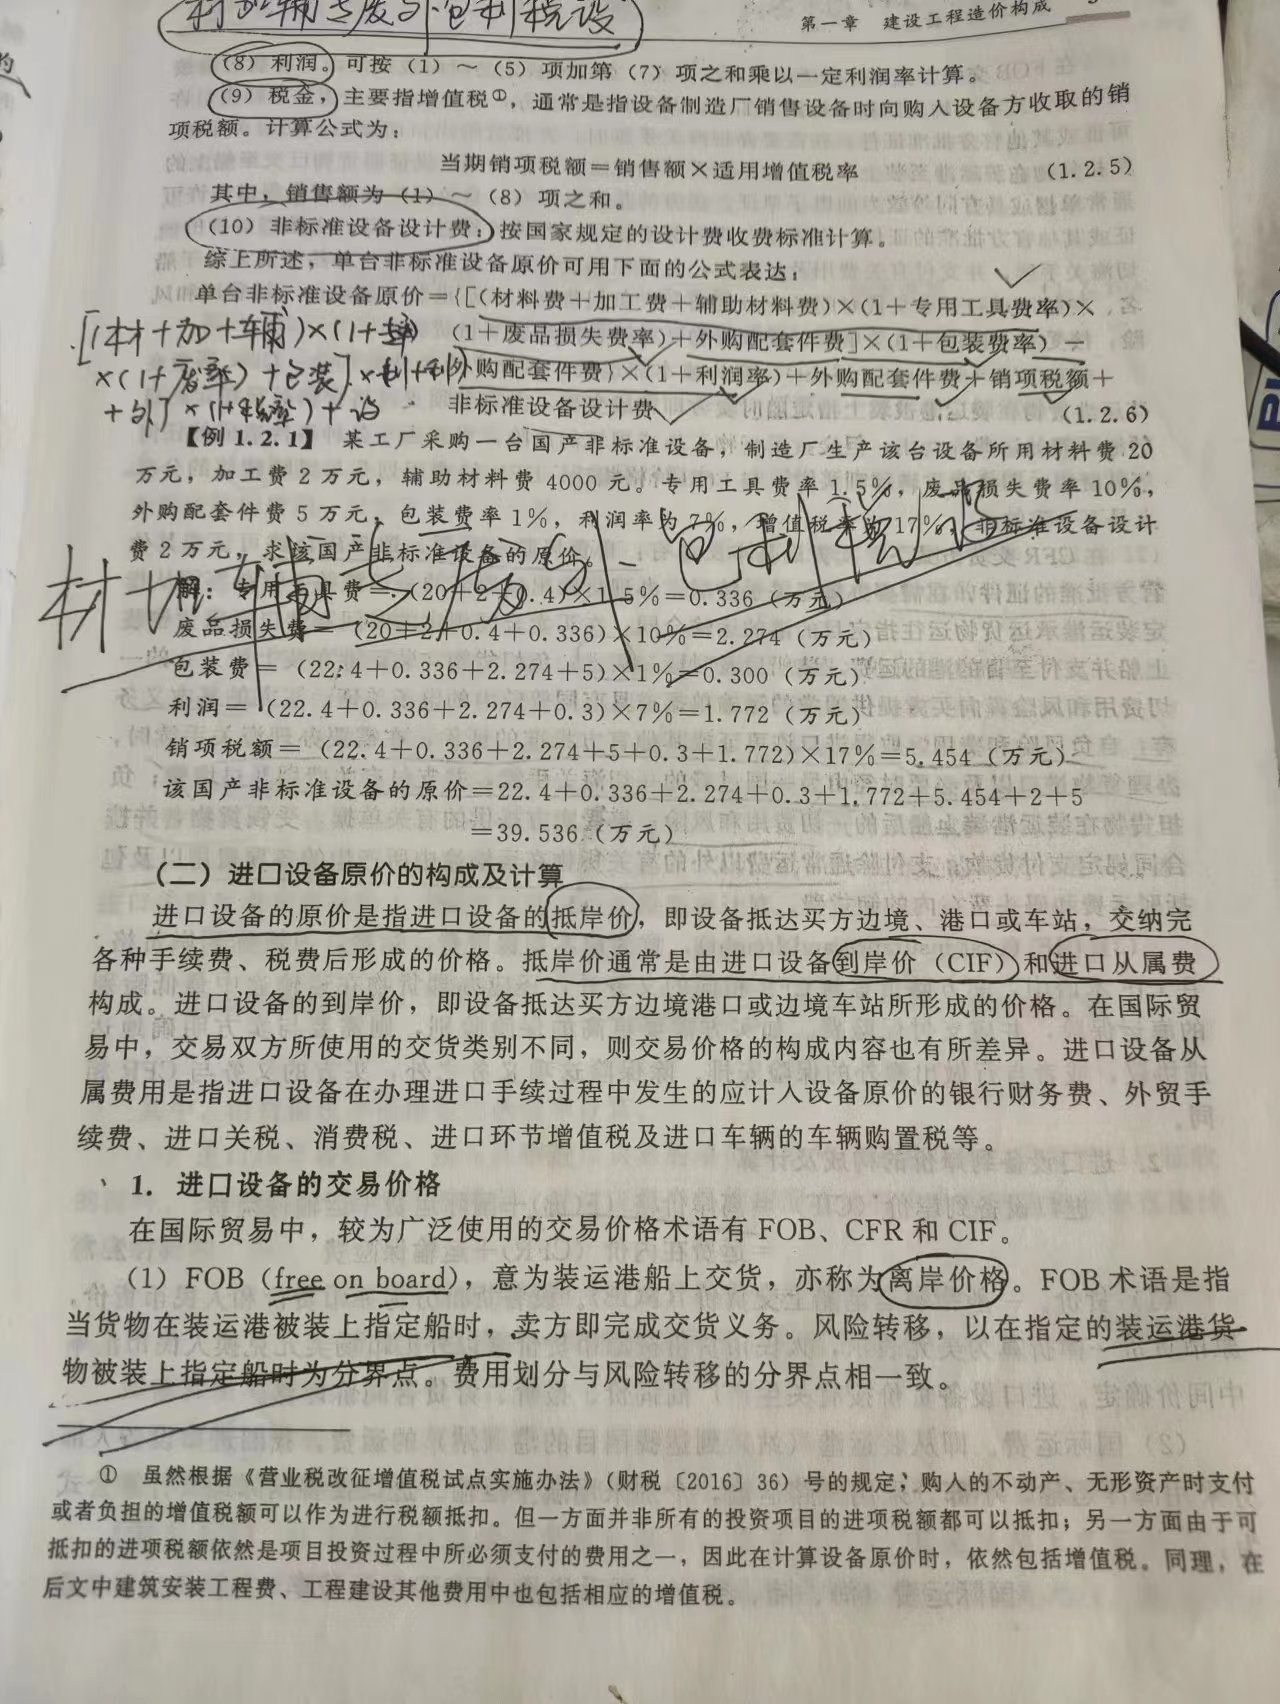 材加辅专废外包利税设
第一章 建设工程造价构成
(8) 利润。可按（1）～（5）项加第（7）项之和乘以一定利润率计算。
(9) 税金，主要指增值税①，通常是指设备制造厂销售设备时向购入设备方收取的销
项税额。计算公式为：
当期销项税额＝销售额×适用增值税率 (1.2.5)
其中，销售额为（1）～（8）项之和。
(10) 非标准设备设计费：按国家规定的设计费收费标准计算。
综上所述，单台非标准设备原价可用下面的公式表达：
单台非标准设备原价＝{[(材料费＋加工费＋辅助材料费)×(1＋专用工具费率)×
(1＋废品损失费率)＋外购配套件费]×(1＋包装费率)－
外购配套件费}×(1＋利润率)＋外购配套件费＋销项税额＋
非标准设备设计费 (1.2.6)
[(材＋加＋辅)×(1＋专)
×(1＋废率)＋包装]
【例 1.2.1】 某工厂采购一台国产非标准设备，制造厂生产该台设备所用材料费 20
万元，加工费 2 万元，辅助材料费 4000 元。专用工具费率 1.5%，废品损失费率 10%，
外购配套件费 5 万元，包装费率 1%，利润率为 7%，增值税率为 17%，非标准设备设计
费 2 万元，求该国产非标准设备的原价。
材加辅专废外包利税设
解：专用工具费＝(20＋2＋0.4)×1.5%＝0.336（万元）
废品损失费＝(20＋2＋0.4＋0.336)×10%＝2.274（万元）
包装费＝(22.4＋0.336＋2.274＋5)×1%＝0.300（万元）
利润＝(22.4＋0.336＋2.274＋0.3)×7%＝1.772（万元）
销项税额＝(22.4＋0.336＋2.274＋5＋0.3＋1.772)×17%＝5.454（万元）
该国产非标准设备的原价＝22.4＋0.336＋2.274＋0.3＋1.772＋5.454＋2＋5
＝39.536（万元）
（二）进口设备原价的构成及计算
进口设备的原价是指进口设备的抵岸价，即设备抵达买方边境、港口或车站，交纳完
各种手续费、税费后形成的价格。抵岸价通常是由进口设备到岸价（CIF）和进口从属费
构成。进口设备的到岸价，即设备抵达买方边境港口或边境车站所形成的价格。在国际贸
易中，交易双方所使用的交货类别不同，则交易价格的构成内容也有所差异。进口设备从
属费用是指进口设备在办理进口手续过程中发生的应计入设备原价的银行财务费、外贸手
续费、进口关税、消费税、进口环节增值税及进口车辆的车辆购置税等。
1. 进口设备的交易价格
在国际贸易中，较为广泛使用的交易价格术语有 FOB、CFR 和 CIF。
(1) FOB（free on board），意为装运港船上交货，亦称为离岸价格。FOB 术语是指
当货物在装运港被装上指定船时，卖方即完成交货义务。风险转移，以在指定的装运港货
物被装上指定船时为分界点。费用划分与风险转移的分界点相一致。
① 虽然根据《营业税改征增值税试点实施办法》（财税〔2016〕36）号的规定，购入的不动产、无形资产时支付
或者负担的增值税额可以作为进行税额抵扣。但一方面并非所有的投资项目的进项税额都可以抵扣；另一方面由于可
抵扣的进项税额依然是项目投资过程中所必须支付的费用之一，因此在计算设备原价时，依然包括增值税。同理，在
后文中建筑安装工程费、工程建设其他费用中也包括相应的增值税。